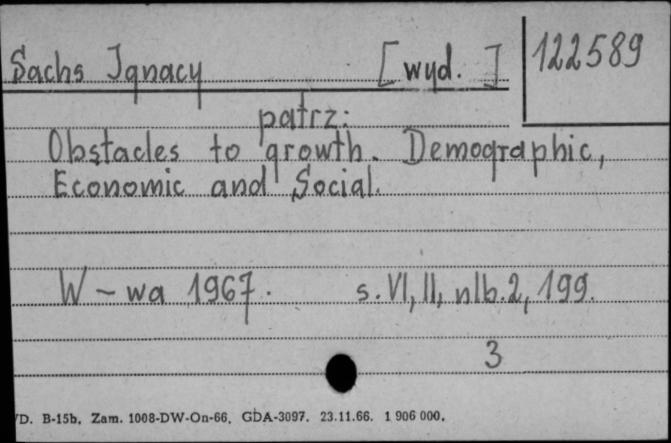 Sachs Ignacy [wyd.] 122589
patrz:
Obstacles to growth. Demographic,
Economic and Social.
W-wa 1967. s. VI, II, nlb. 2, 199.
3
D. B-15b. Zam. 1008-DW-On-66. GDA-3097. 23.11.66. 1 906 000.